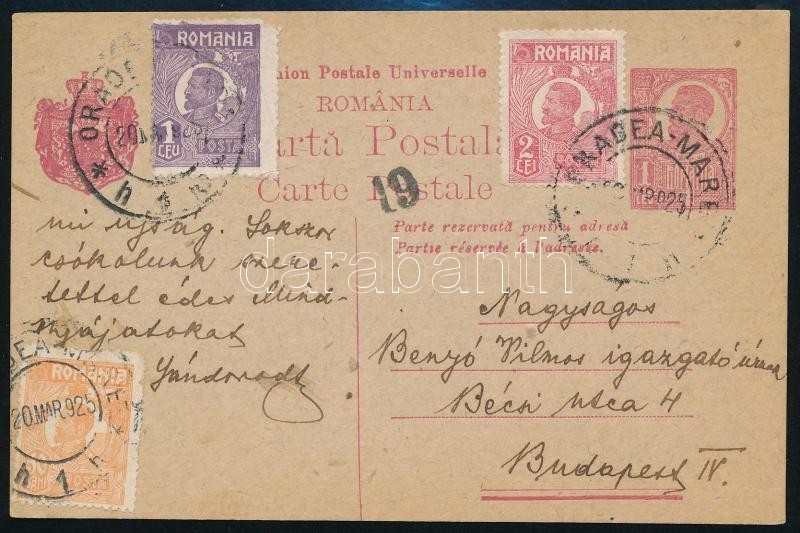 ROMANIA
1 LEU POSTA
Union Postale Universelle
ROMÂNIA
Carta Postală
Carte Postale
ROMANIA
2 LEI
1
ORADEA
20 MAR 925
19
ORADEA-MARE
MAR 925
Parte rezervată pentru adresă
Partie réservée à l'adresse.
mi ujság. Sokszor
csókolunk szere-
tettel édes Mind-
nyájatokat
darabanth
Nagyságos
Benyó Vilmos igazgató úrnak
Bécsi utca 4
Budapest IV.
ROMANIA
20 MAR 925